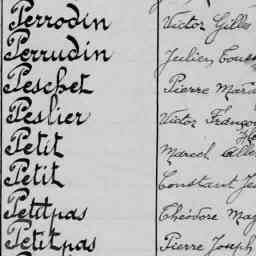 Perrodin Victor Gilles
Perrudin Julien
Peschet Pierre
Peslier Victor
Petit Marcel
Petit Constant
Petitpas Théodore
Petitpas Pierre Joseph